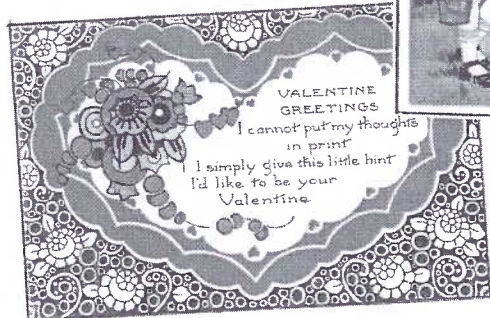 VALENTINE
GREETINGS
I cannot put my thoughts
in print
I simply give this little hint
I'd like to be your
Valentine